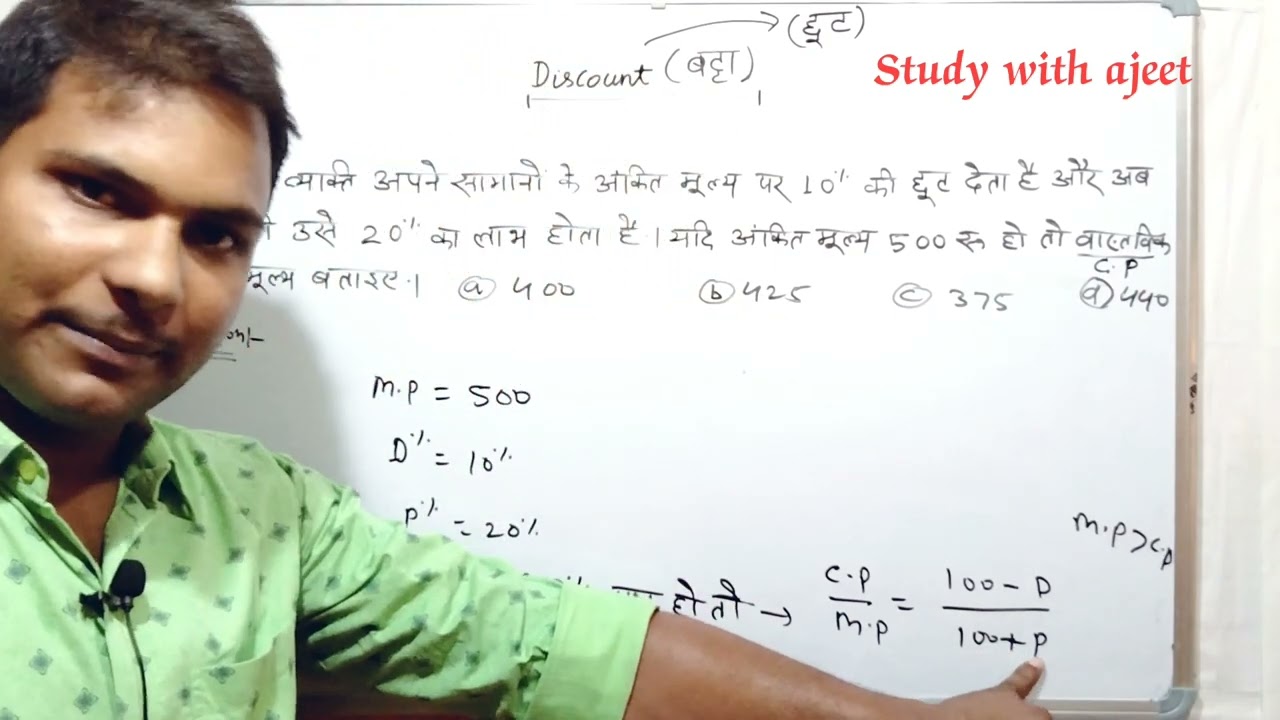 (छूट)
Discount (बट्टा)
Study with ajeet
व्यक्ति अपने सामानों के अंकित मूल्य पर 10% की छूट देता है और अब
उसे 20% का लाभ होता है। यदि अंकित मूल्य 500 रु हो तो वास्तविक
C.P
मूल्य बताइए। (a) 400 (b) 425 (c) 375 (d) 440
M.P = 500
D% = 10%
P% = 20%
M.P > C.P
हो तो → C.P/M.P = 100 - D/100 + P